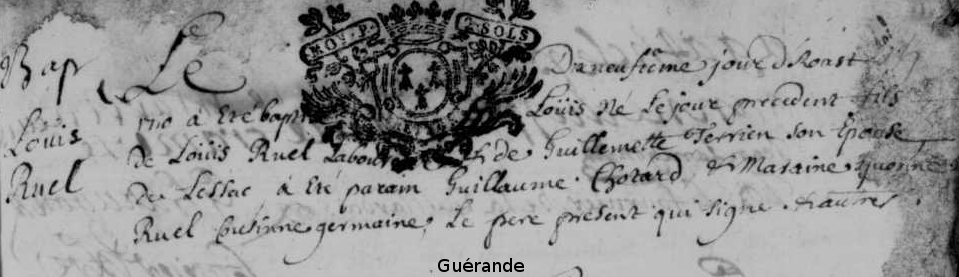 Bap
Louis
Ruel
MOY. P. 2 SOLS
Le Dixneufieme jour d'Aoust
1710 a eté bapt Loüis né le jour precedent fils
de Loüis Ruel Labour & de Guillemette Terrien son Epouse
de Lessac a eté parain Guillaume Chotard & Maraine yvonne
Ruel Cousinne germaine, le pere present qui signe & autres.
Guérande